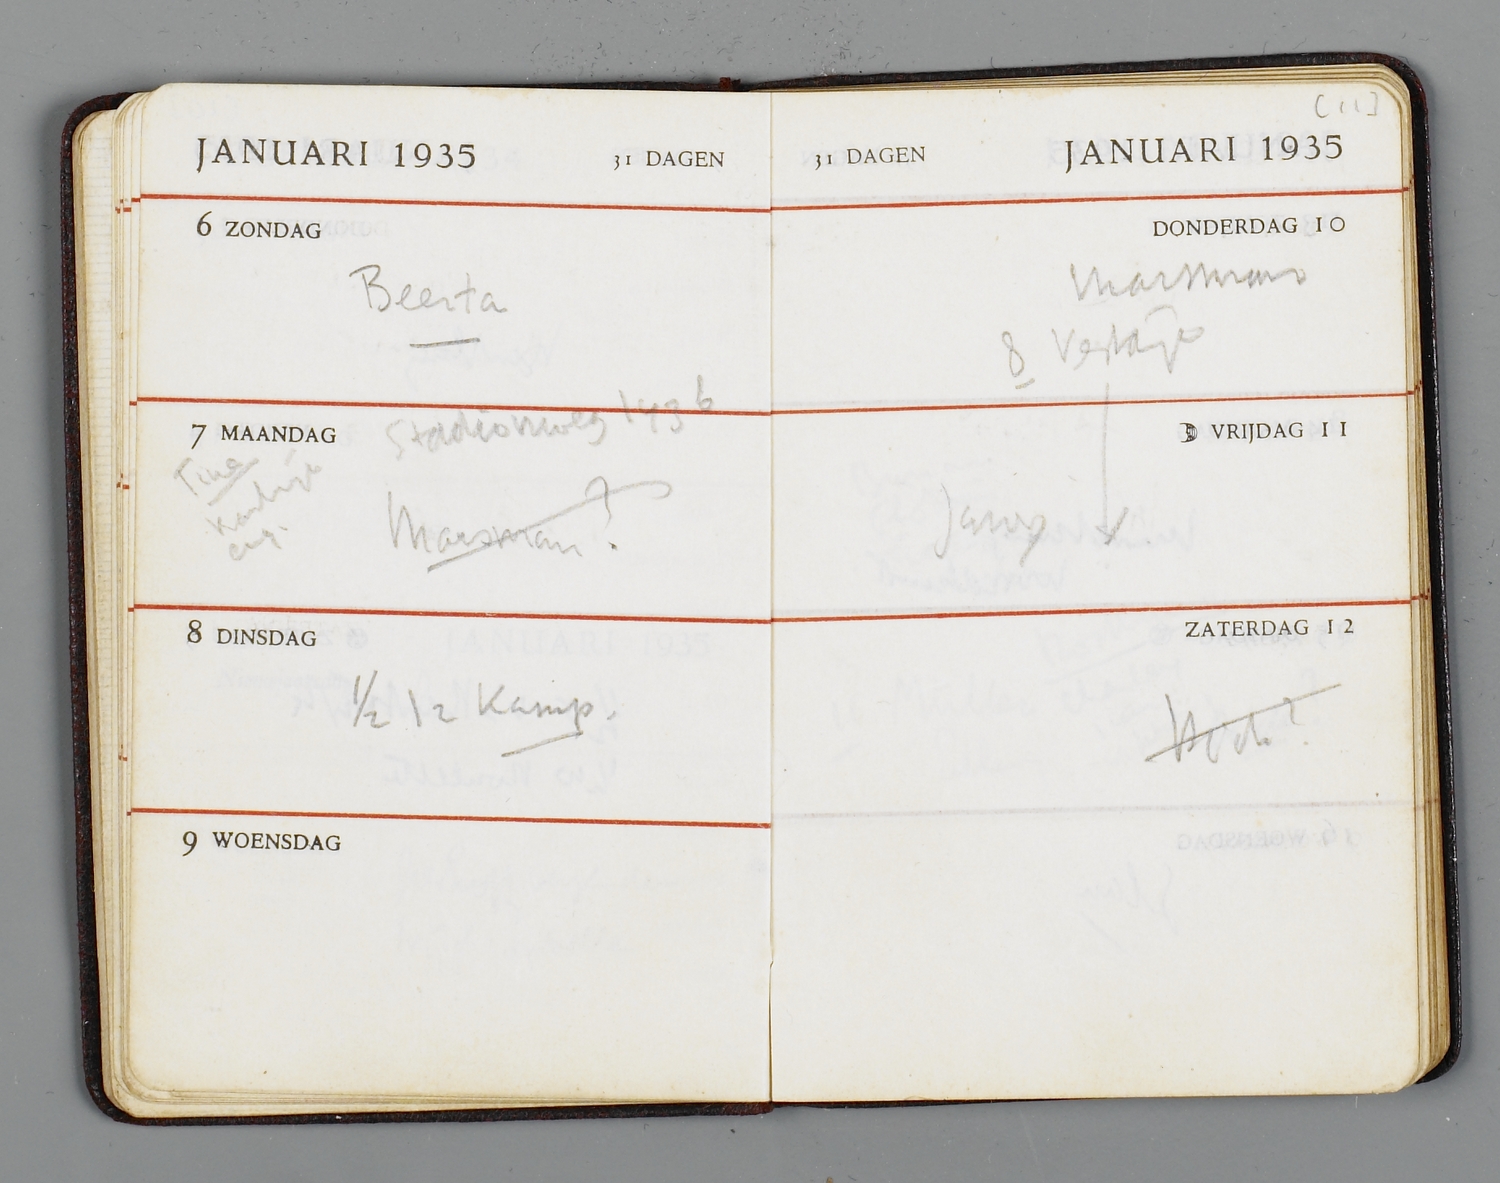 JANUARI 1935 31 DAGEN
6 ZONDAG
Beerta
7 MAANDAG
Stadionweg 1436
Tine
Marsman?
8 DINSDAG
1/2 12 Kamp.
9 WOENSDAG
[11]
31 DAGEN JANUARI 1935
DONDERDAG 10
Marsman
8
VRIJDAG 11
ZATERDAG 12